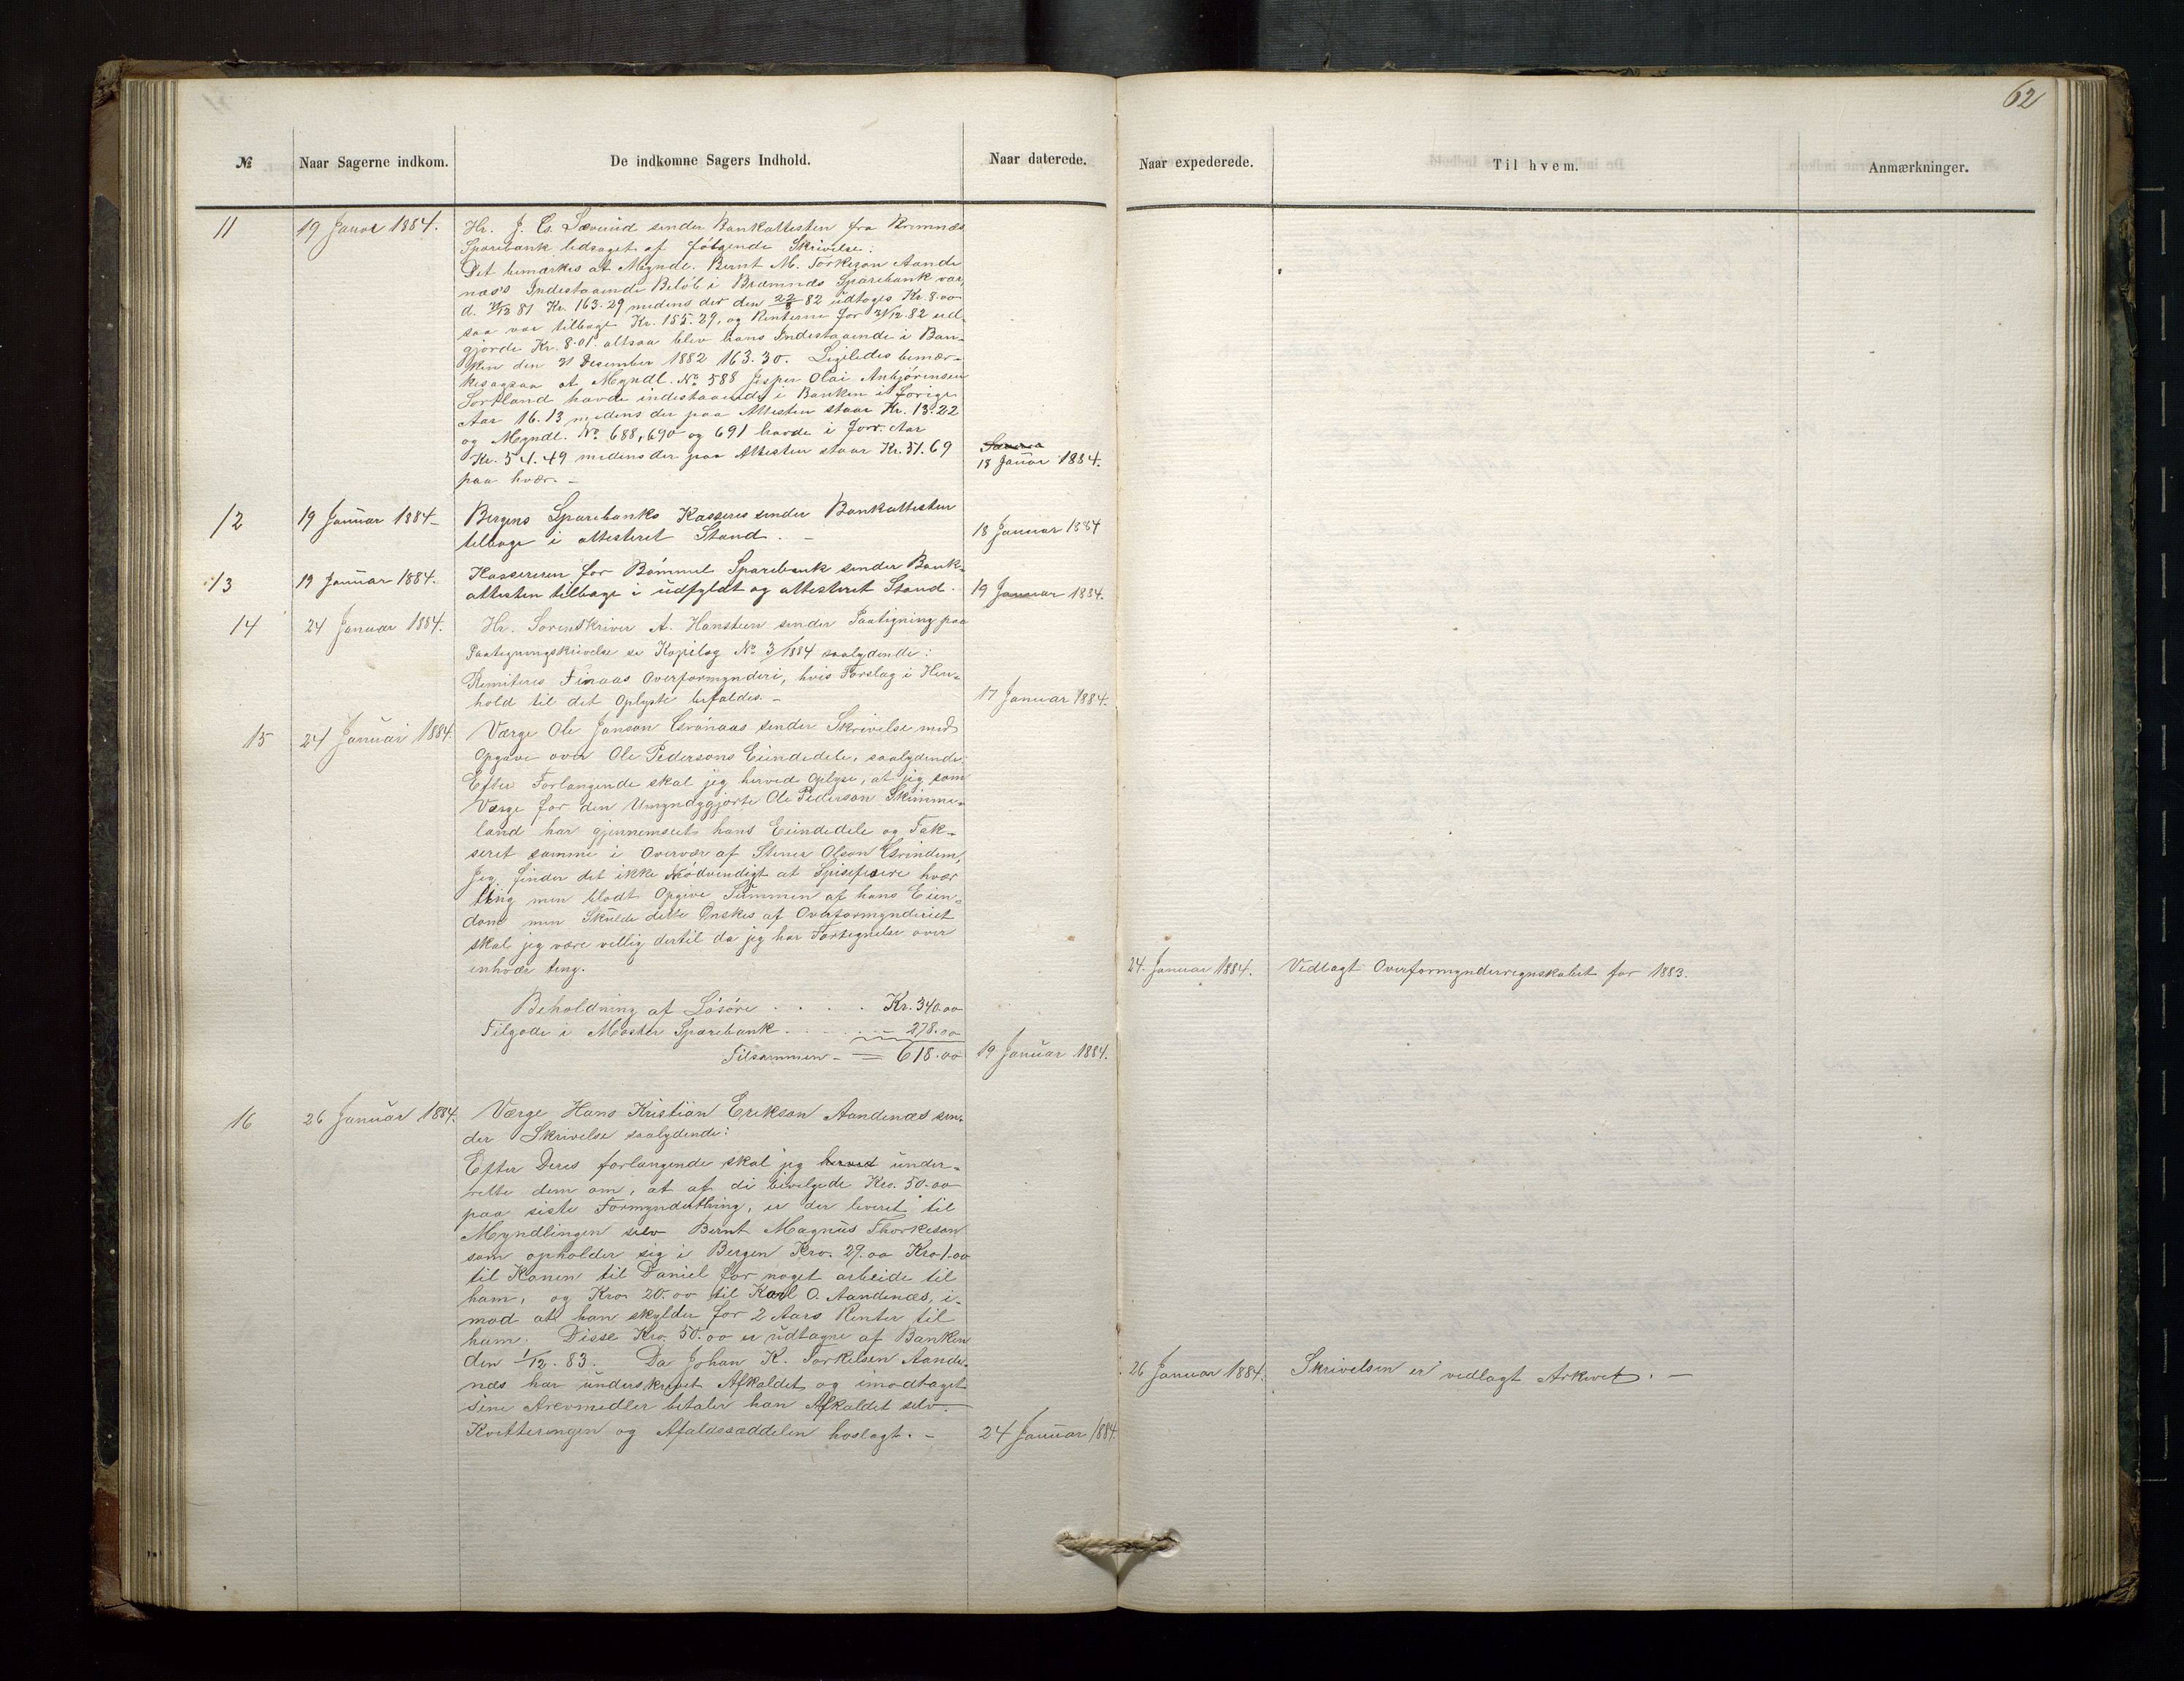 62
№ Naar Sagerne indkom. De indkomne Sagers Indhold. Naar daterede. Naar expederede. Til hvem. Anmærkninger.
11 19 Januar 1884. Hr. J. G. Sæverud sender Bankattesten fra Bremnæs
Sparebank ledsaget af følgende Skrivelse:
Det bemærkes at Myndl. Bernt M. Torkeson Aande
næs's Indestaaende Beløb i Bremnæs Sparebank var
d. 31/12 81 Kr. 163.29 medens der den 22/8 82 udtoges Kr. 8.00
saa var tilbage Kr. 155.29, og Renterne for 31/12.82 ud-
gjorde Kr. 8.01 altsaa blev hans Indestaaende i Ban-
ken den 31 Desember 1882 163.30. Ligeledes bemær-
kes ogsaa at Myndl. No 588 Jesper Olai Anbjørensen
Sortland havde indestaaende i Banken i forige
Aar 16.13 medens der paa Attesten staar Kr. 13.22
og Myndl. No 688, 690 og 691 havde i forr. Aar
Kr. 54.49 medens der paa Attesten staar Kr. 51.69
paa hvær. -
18 Januar 1884.
12 19 Januar 1884 - Bergens Sparebanks Kasserer sender Bankattesten
tilbage i attesteret Stand. - 18 Januar 1884
13 19 Januar 1884. Kassereren for Bömmel Sparebank sender Bank-
attesten tilbage i udfyldt og attesteret Stand. 19 Januar 1884.
14 24 Januar 1884. Hr. Sorenskriver A. Hansteen sender Paategning paa
Paategningskrivelse se Kopibog No 3/1884 saalydende:
Remiteres Finaas Overformynderi, hvis Forslag i Hen-
hold til det Oplyste befaldes. - 17 Januar 1884.
15 24 Januar 1884 Værge Ole Janson Grönaas sender Skrivelse med
Opgave over Ole Pedersons Eiendele, saalydende:
Efter Forlangende skal jeg herved Oplyse, at jeg som
Værge for den Umyndggjorte Ole Pederson Skimme-
land har gjennemseet hans Eiendele og Tak-
seret samme i Overvær af Stener Olson Grindem,
Jeg finder det ikke Nødvendigt at Spisefisere hvær
ting men blodt Opgive Summen af hans Eien-
dom men Skulde dette Ønskes af Overformynderiet
skal jeg være villig dertil da jeg har Fortegnelse over
enhvær ting.
24. Januar 1884. Vedlagt Overformynderregnskabet for 1883.
Beholdning af Løsøre . . . . Kr. 340.00
Tilgode i Moster Sparebank . . . . - 278.00
Tilsammen - = 618.00 19 Januar 1884.
16 26 Januar 1884. Værge Hans Kristian Erikson Aandenæs sen-
der Skrivelse saalydende:
Efter Deres forlangende skal jeg herved under-
rette dem om, at af di bevilgede Kro. 50.00
paa siste Formynderthing, er der leveret til
Myndlingen selv Bernt Magnus Thorkeson
som opholder sig i Bergen Kro. 29.00 Kro 1.00
til Konen til Daniel for noget arbeide til
ham, og Kro 20.00 til Karl O. Aandenæs, i-
mod at han skylder for 2 Aars Renter til
ham. Disse Kro. 50.00 er udtagne af Banken
den 1/12. 83. Da Johan K. Torkelsen Aande-
næs har underskrevet Afkaldet og imodtaget
sine Arevmedler betaler han Afkaldet selv.
Kvitteringen og Afaldssæddelen hoslagt. - 24 Januar 1884
26 Januar 1884. Skrivelsen er vedlagt Arkivet. -